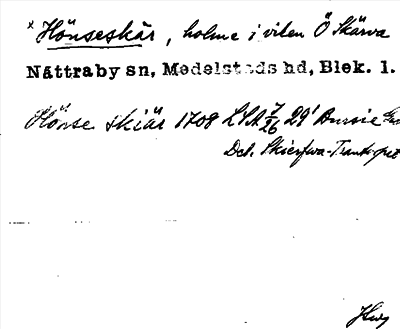 x Hönseskär, holme i viken Ö Skärva
Nättraby sn, Medelstads hd, Blek. l.
Hönse skiär 1708 LSA 7/26 29¹
Del. Skierfwa-